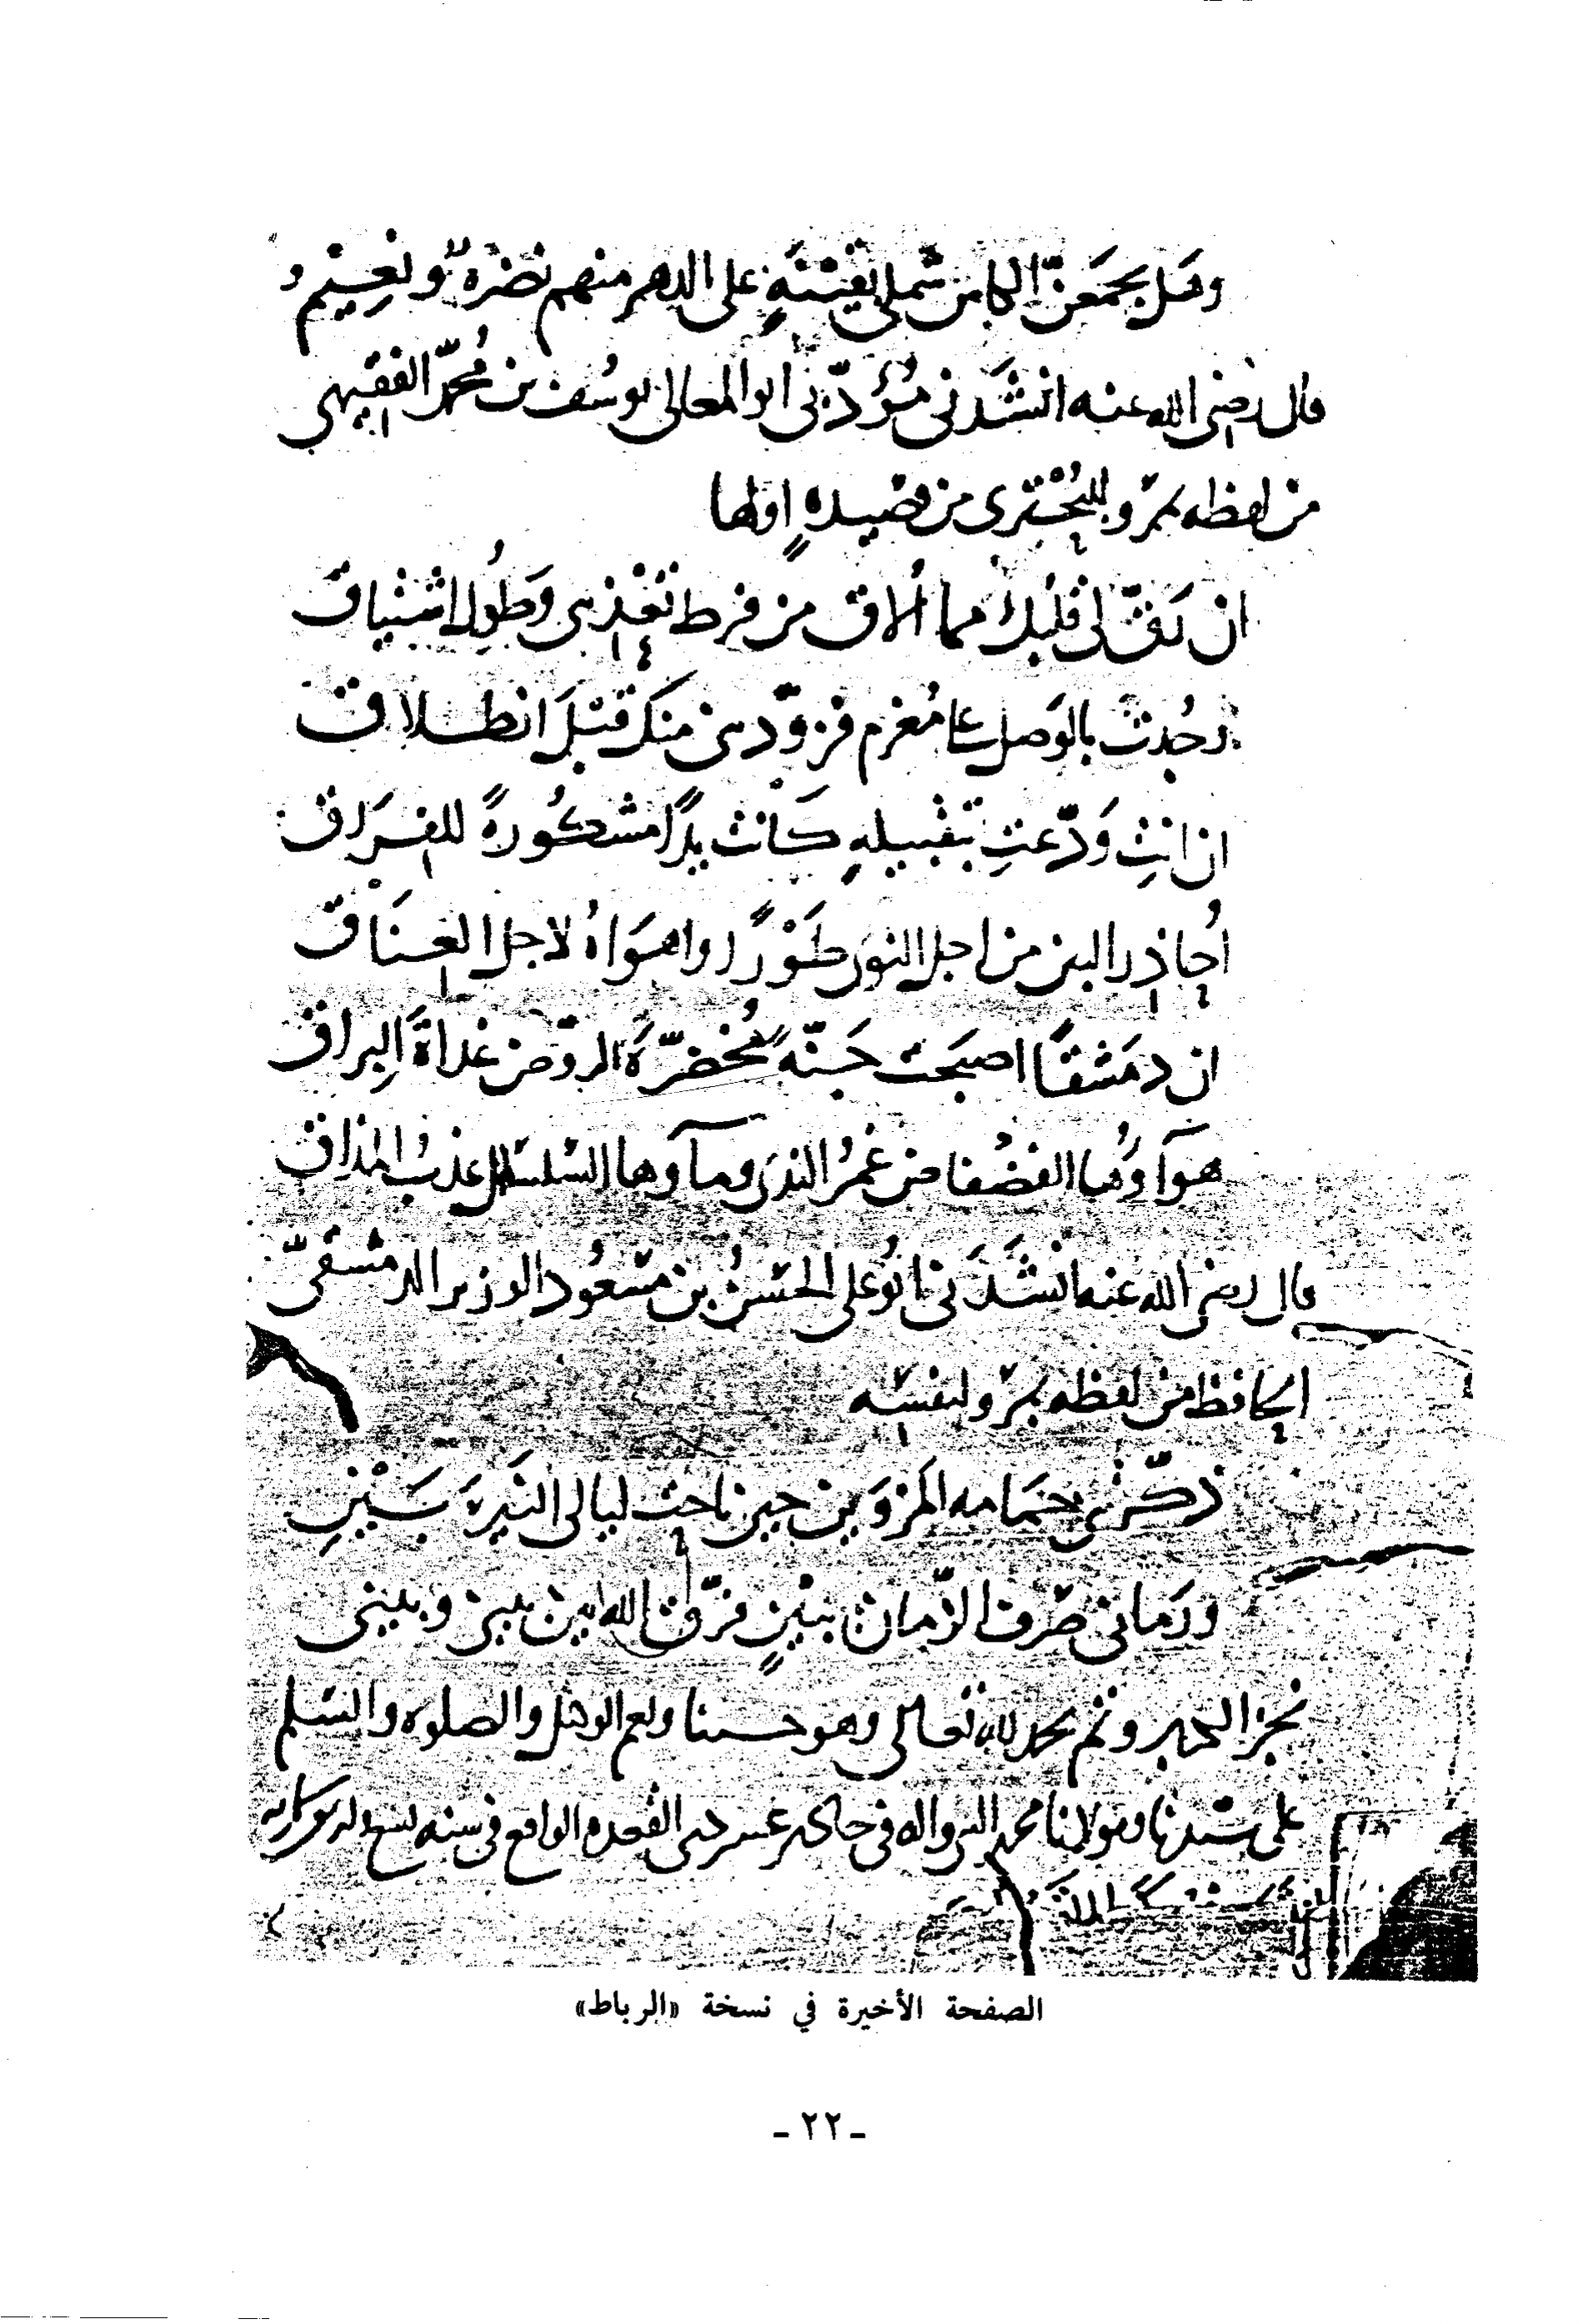 وهل يجمعنّ الكاس شملي بفتيةٍ على الدهر منهم نضرةٌ ونعيمُ
قال رضي الله عنه انشدني مؤدّبي ابو المعالي يوسف بن محمّد الفقيهي
من لفظه بمرو للبُحتري من قصيدةٍ اولها
ان رَقّ لي قلبك مما اُلاق من فرط تعذيبي وَطُول اشتياق
وجُدتَ بالوَصل على مُغرم فزوّديني منك قبلَ انطلاق
ان انتِ وَدّعتِ بتقبيلهٍ كانت يدًا مشكورةً للفراق
اُحاذر البين من اجل النوى طَوْرًا واهوَاهُ لاجل العناق
ان دمَشقًا اصبحَت جَنّهً مُخضَرّةَ الروض غداةَ البِراق
هوَآوُها الفضفاض غمرُ الندى ومآوها السلسل عذبُ المذاق
قال رضي الله عنه انشَدَني ابُو علي الحسَنُ بن مسعُود الوزير الدمشقيّ
الحافظ من لفظه بمرو لنفسه
ذكّرتني حمَامه المَروَين حين ناحت ليالي النَيرَبَينِ
ورَماني صَرف الزّمان ببَينٍ فرّق الله بين بيني وبيني
نجز الـ وتم بحمد الله تعالى وهو حسبنا ونعم الوكيل والصلوه والسلم
على سيدنا ومولانا محمد النبي واله في حادي عسر ذي القعده الواقع في سنه
الصفحة الأخيرة في نسخة «الرباط»
- ٢٢ -